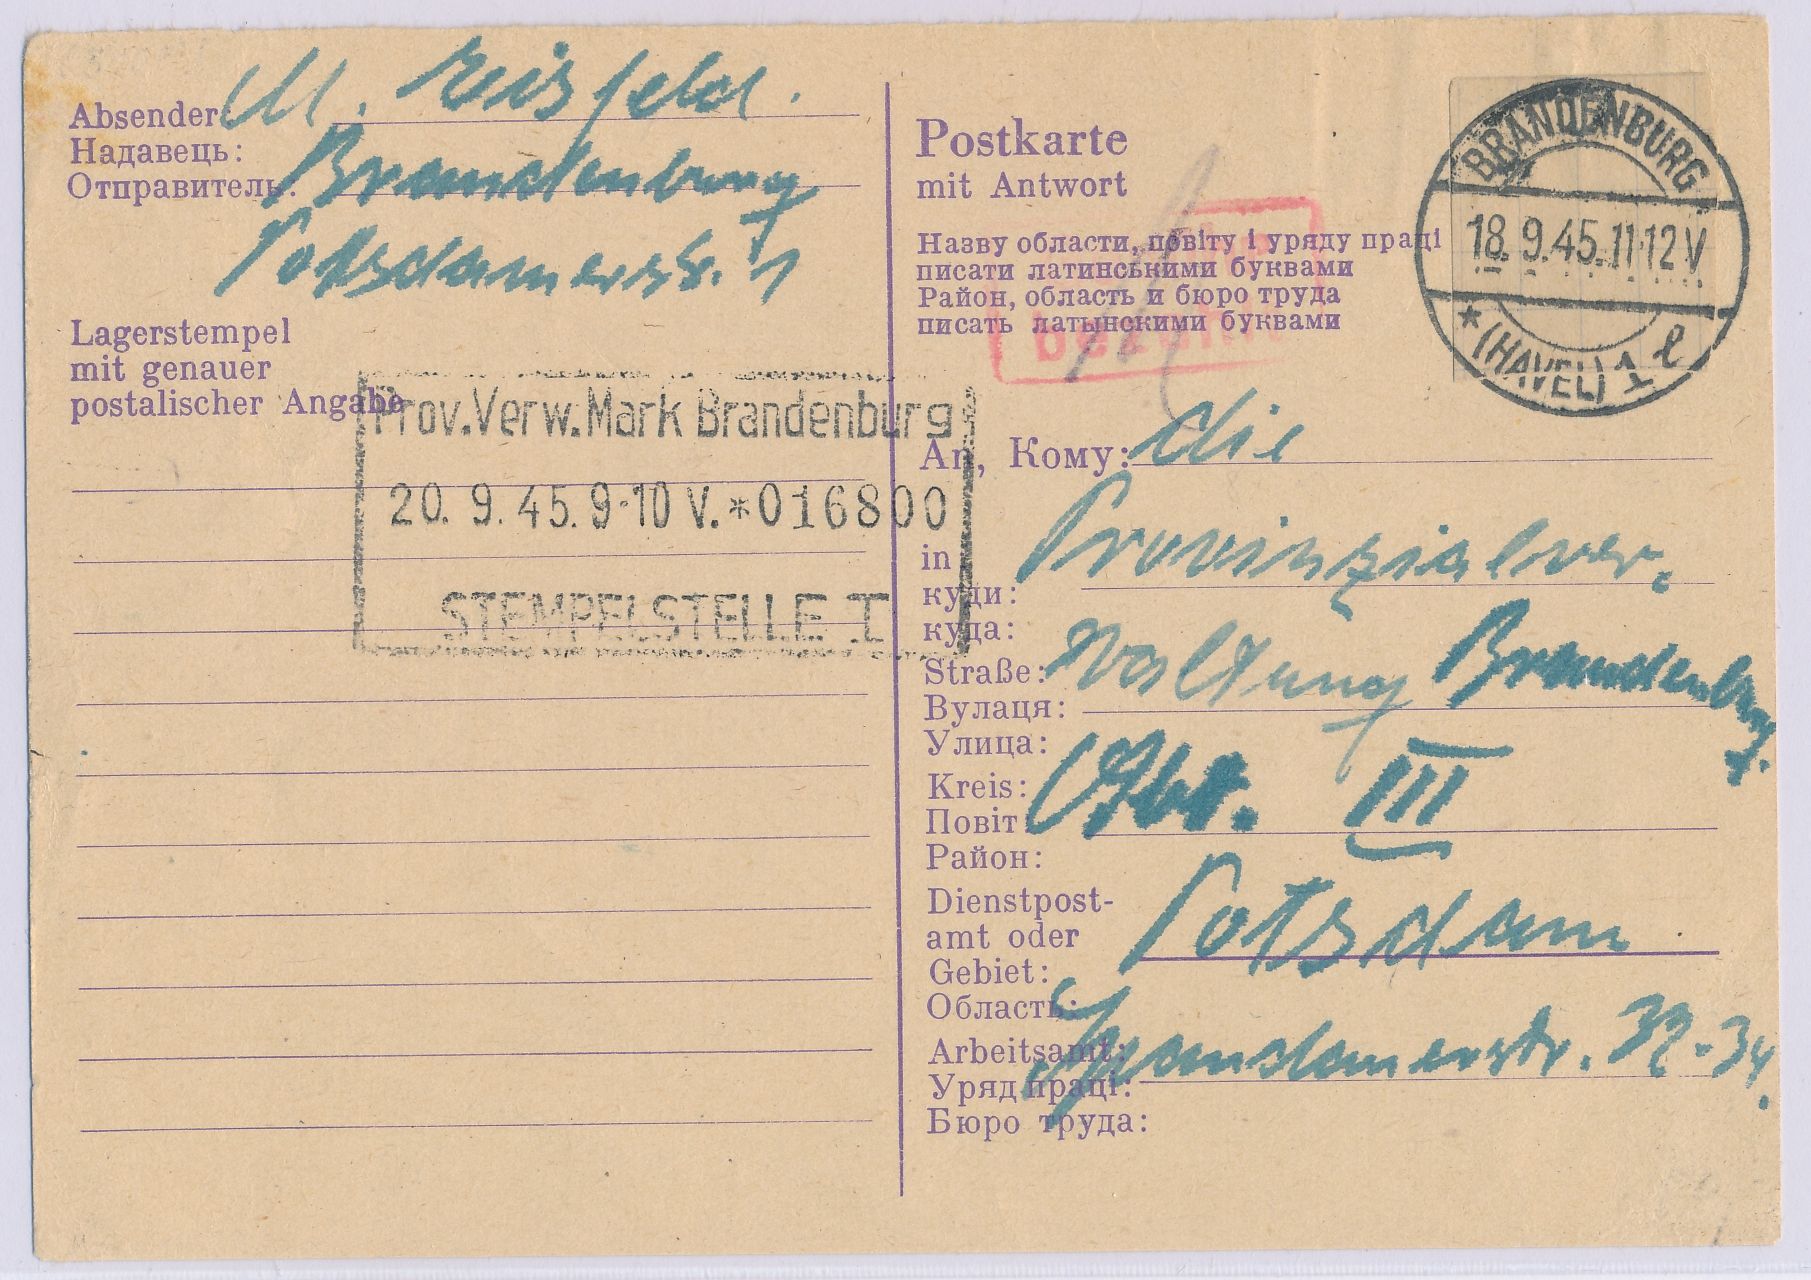 Absender:
M. Eisfeld.
Надавець:
Отправитель:
Brandenburg
Potsdamerstr.
Lagerstempel
mit genauer
postalischer Angabe
Prov.Verw.Mark Brandenburg
20. 9. 45. 9-10 V.*016800
STEMPELSTELLE I
Postkarte
mit Antwort
Назву области, повіту і уряду праці
писати латинськими буквами
Район, область и бюро труда
писать латынскими буквами
bezahlt
BRANDENBURG
18. 9. 45. 11-12 V
* (HAVEL) 1 l
An, Кому: die
in
куди:
куда:
Provinzialver-
Straße:
Вулаця:
Улица:
waltung Brandenburg.
Kreis:
Повіт
Район:
Abt. III
Dienstpost-
amt oder
Gebiet:
Область:
Potsdam
Arbeitsamt:
Уряд праці:
Бюро труда:
32-34.